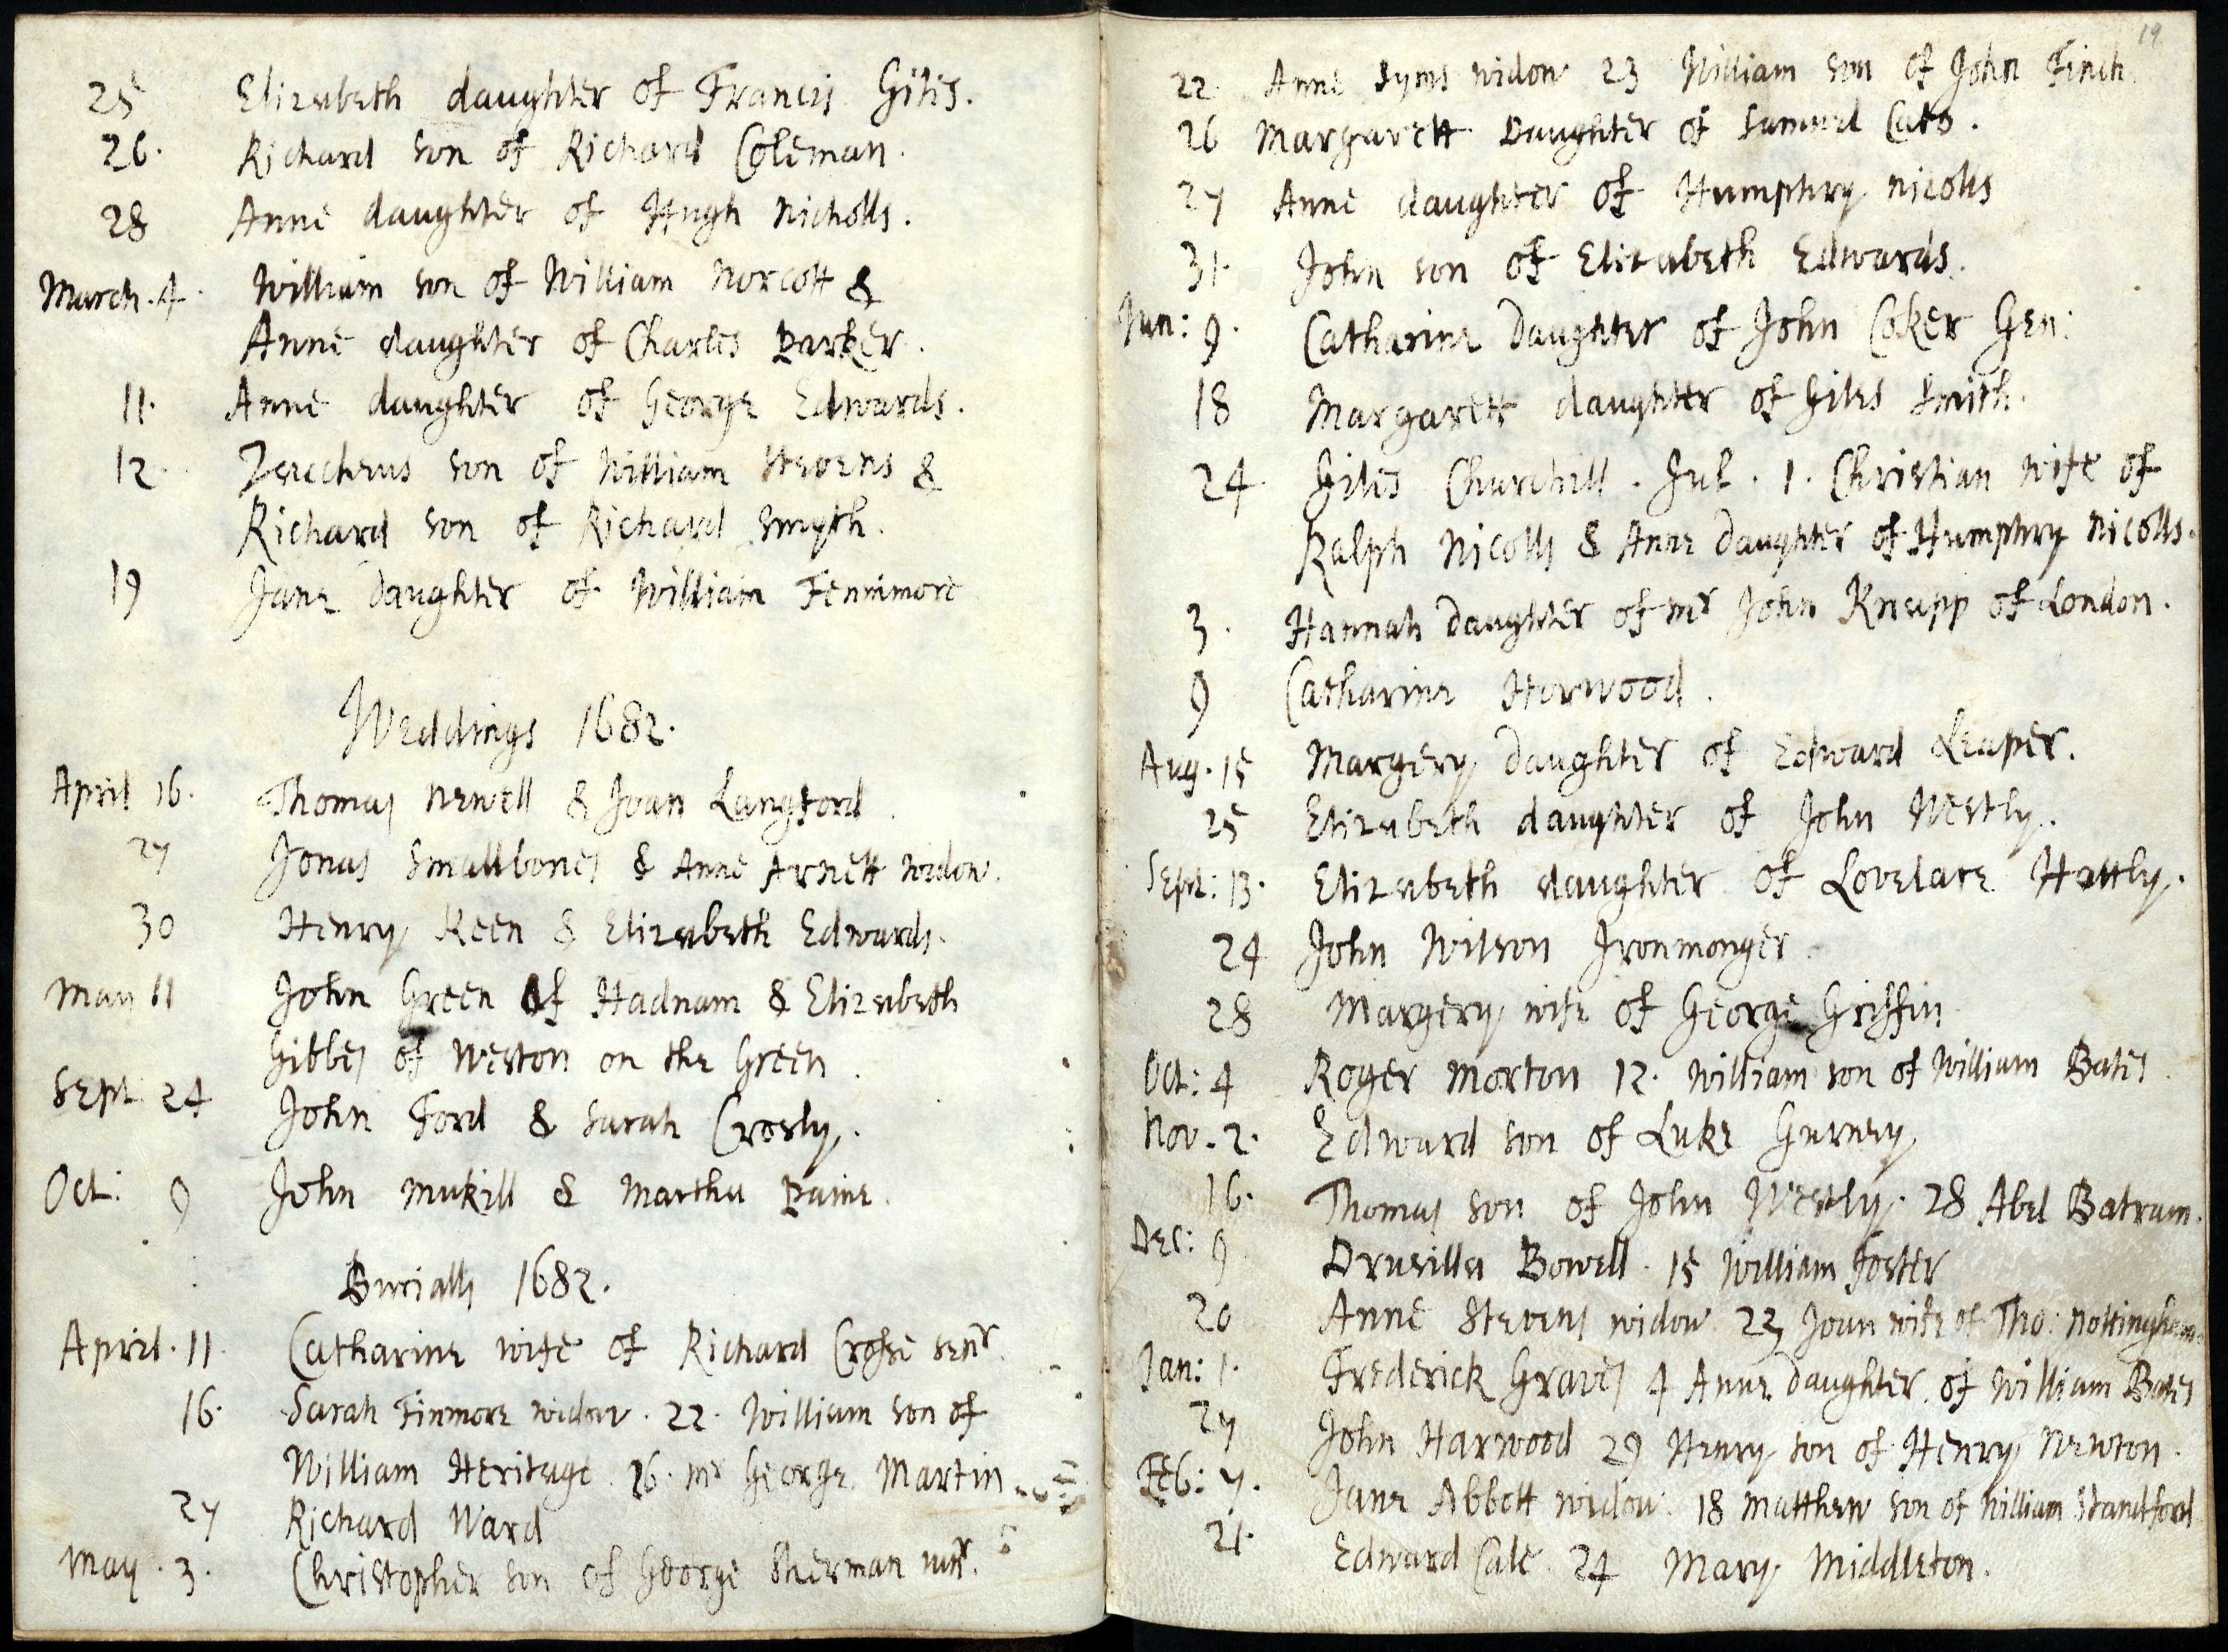 25 Elizabeth daughter of Francis Giles.
26. Richard son of Richard Coleman.
28 Anne daughter of Hugh Nicholls.
March. 4. William son of William Norcott &
Anne daughter of Charles Parker.
11. Anne daughter of George Edwards.
12. Zaccheus son of William Stevens &
Richard son of Richard Smyth.
19 Jane Daughter of William Fennimore
Weddings 1682.
April 16. Thomas Newell & Joan Langford
27 Jonas Smallbones & Anne Arnett widow.
30 Henry Keen & Elizabeth Edwards.
May 11 John Green of Hadnam & Elizabeth
Gibbes of Weston on the Green
Sept 24 John Ford & Sarah Crosly.
Oct: 9 John Mukill & Martha Paine.
Burialls 1682.
April. 11. Catharine wife of Richard Crosse senr.
16. Sarah Finmore widow. 22. William son of
William Heritage. 26. mr George Martin
27 Richard Ward
May. 3. Christopher son of George Sherman junr.
19
22. Anne Syms widow 23 William son of John Finch.
26 Margarett Daughter of Samuel Cato.
27 Anne daughter of Humphry Nicolls
31. John son of Elizabeth Edwards.
Jun: 9. Catharine Daughter of John Coker Gen:
18 Margarett daughter of Giles Smith.
24. Giles Churchill. Jul. 1. Christian wife of
Ralph Nicolls & Anne Daughter of Humphry Nicolls.
3. Hannah Daughter of mr John Knapp of London.
9 Catharine Horwood.
Aug. 15 Margery Daughter of Edward Leaper.
25 Elizabeth daughter of John Westly.
Sept: 13. Elizabeth daughter of Lovelace Hattly.
24 John Wilson Ironmonger.
28 Margery wife of George Griffin
Oct: 4 Roger Morton 12. William son of William Bates
Nov. 2. Edward son of Luke Gurney
16. Thomas son of John Westly. 28 Abel Batram.
Dec: 9 Drusilla Bowell. 15 William Foster
20 Anne Stevens widow 23 Joan wife of Tho: Nottingham.
Jan: 1. Frederick Graves 4 Anne Daughter of William Bates
27 John Harwood 29 Henry son of Henry Newton.
Feb: 7. Jane Abbott widow. 18 Matthew son of William Standford
21. Edward Cale. 24 Mary Middleton.